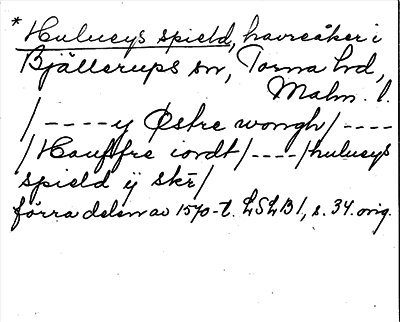 * Hulucys spield, havreåker i
Bjällerups sn, Torna hd,
Malm. l.
/----y Østre wongh/----
/Hauffre iordt/----/hulucys
spield ij skr/
förra delen av 1570-t. LSLB1, s. 34. orig.